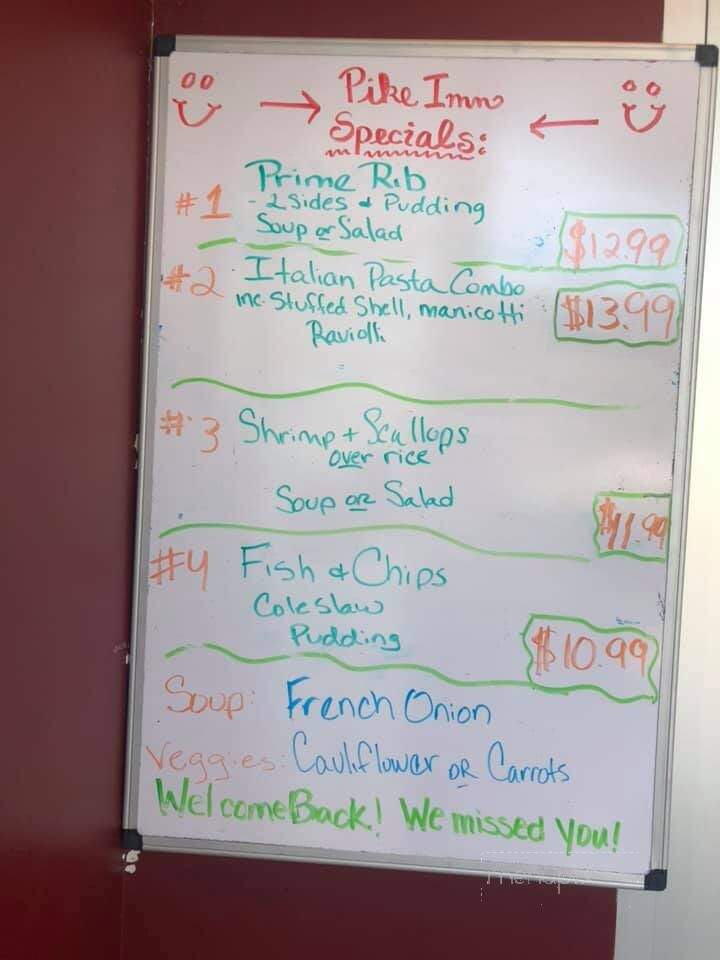 Pike Inn
Specials:
#1 Prime Rib
- 2 Sides & Pudding
Soup or Salad
$12.99
#2 Italian Pasta Combo
inc. Stuffed Shell, manicotti
Raviolli
$13.99
#3 Shrimp + Scallops
over rice
Soup or Salad
$11.99
#4 Fish & Chips
Coleslaw
Pudding
$10.99
Soup: French Onion
Veggies: Cauliflower or Carrots
Welcome Back! We missed You!